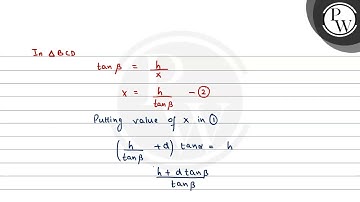 In △BCD
tan β = h/x
x = h/tan β - ②
Putting value of x in ①
(h/tan β + d) tan α = h
h + d tan β/tan β
PW